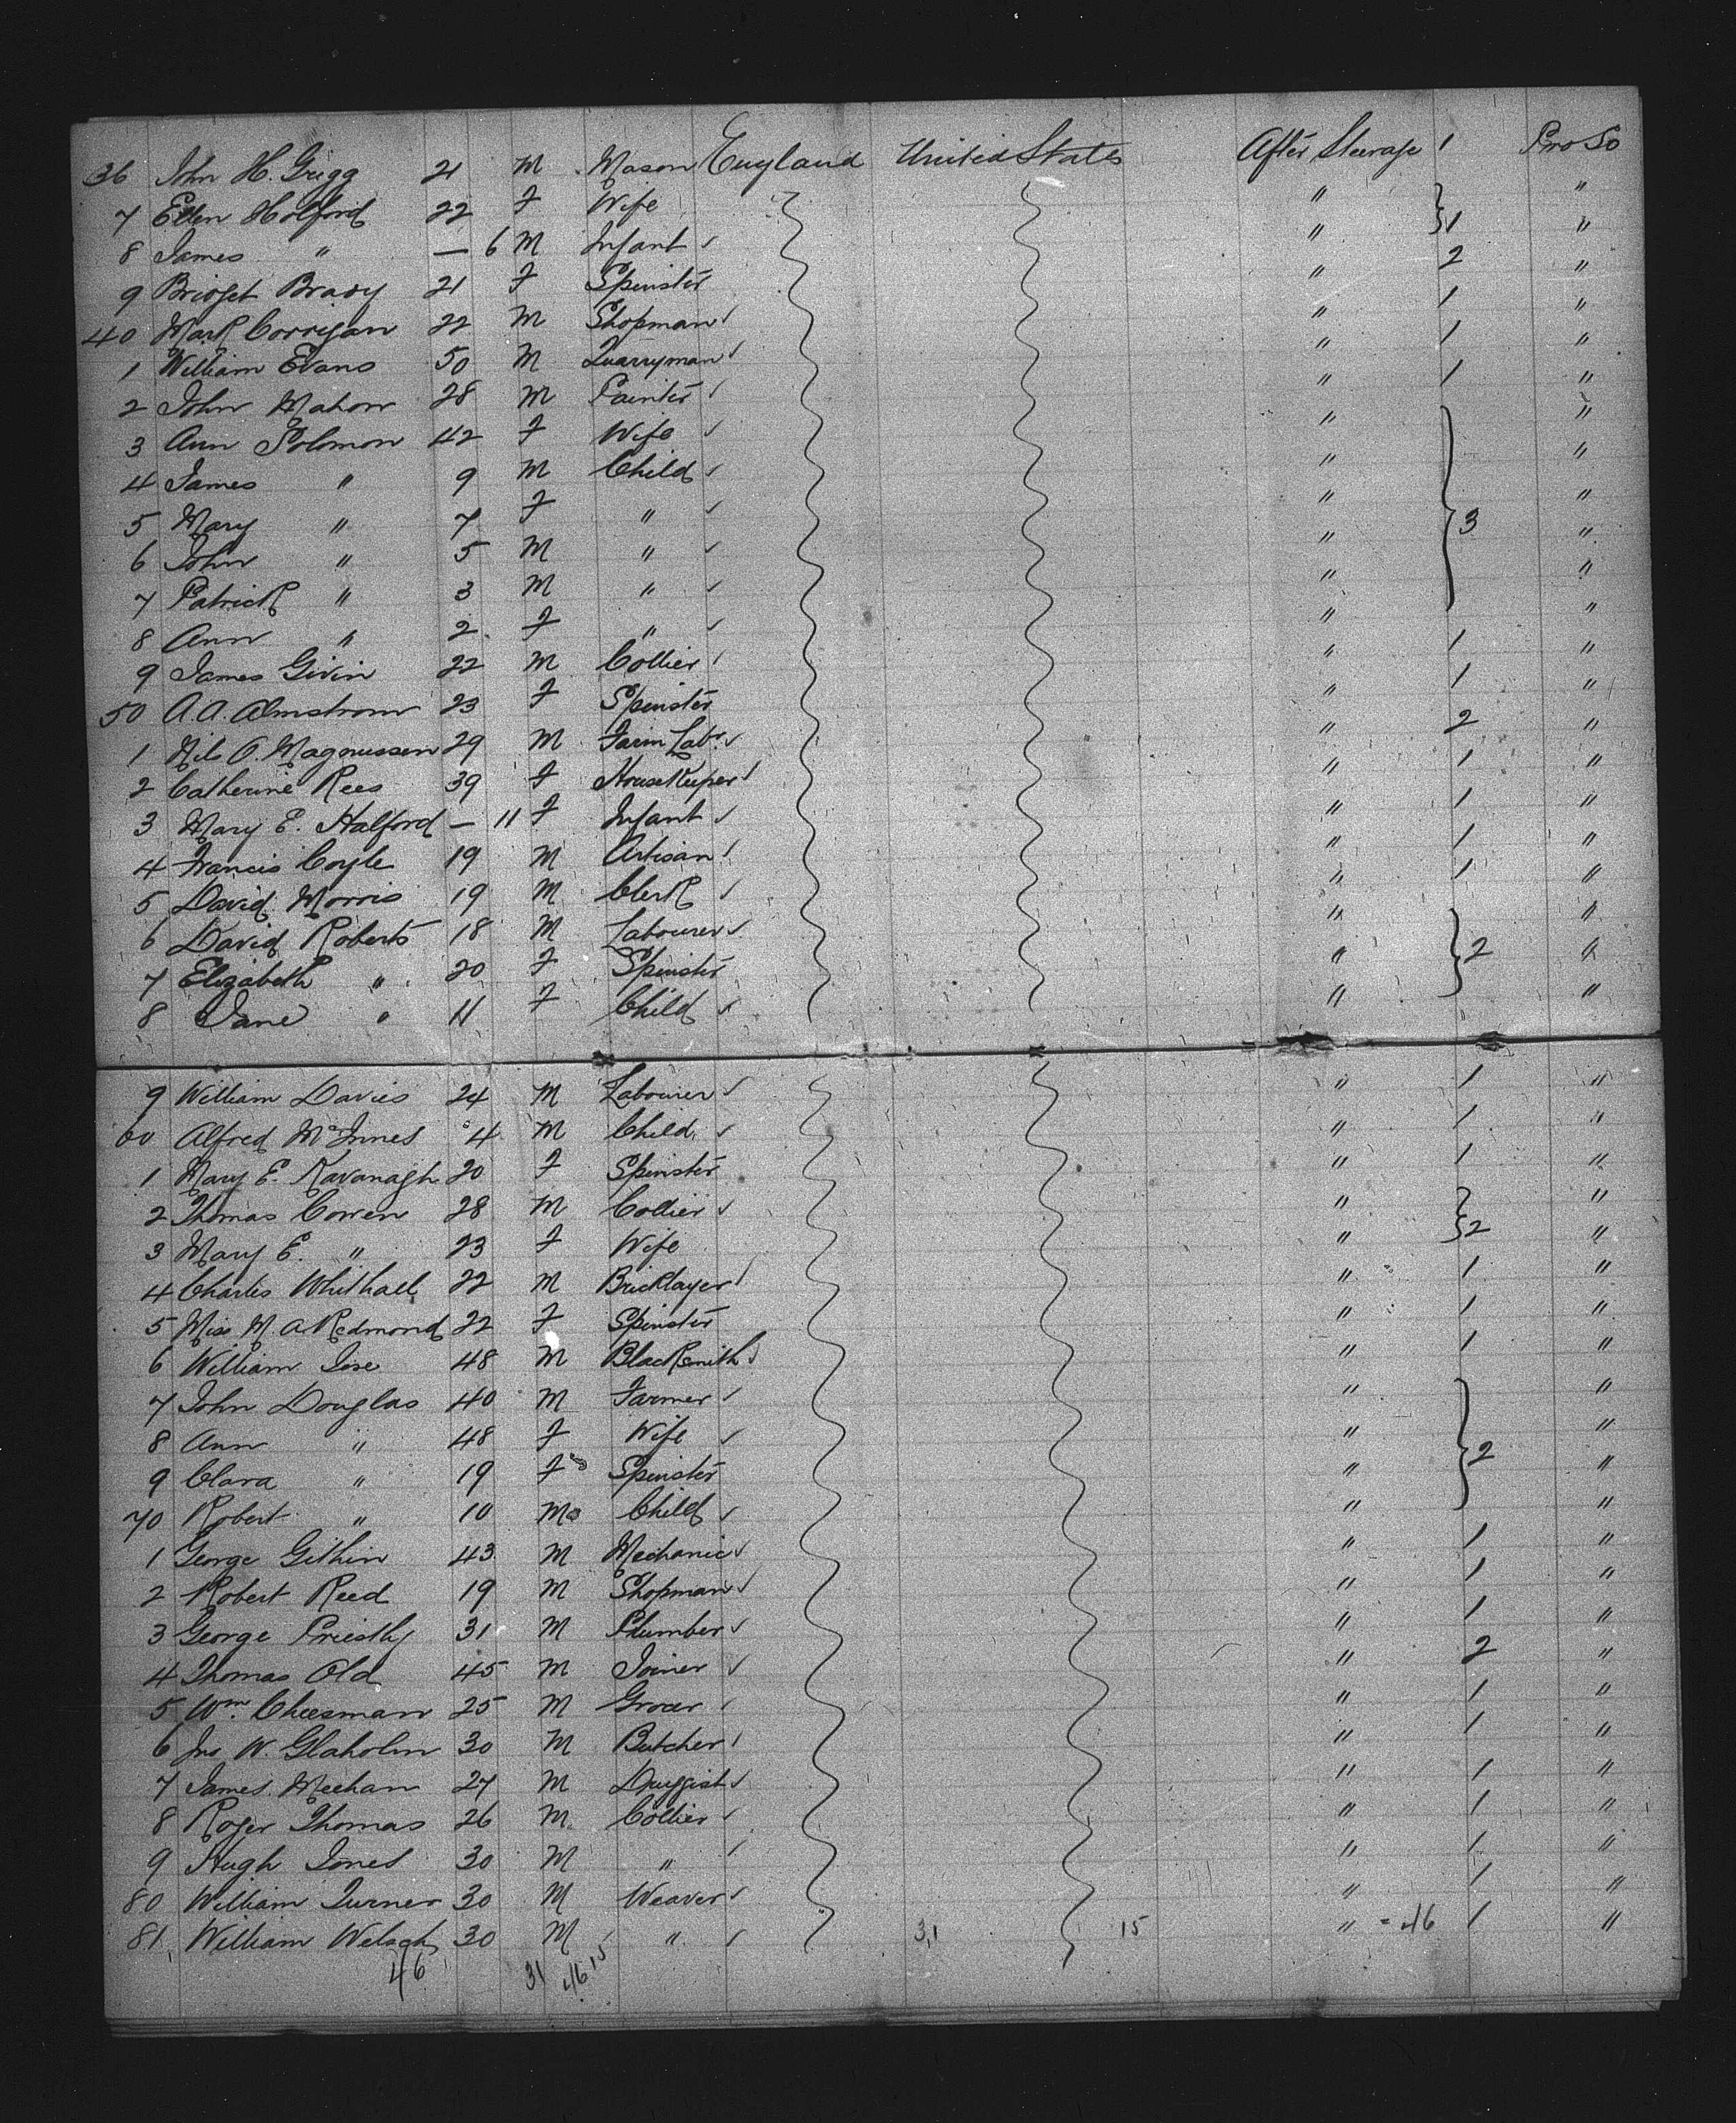 36 John H. Grigg 21 M Mason England United States After Steerage 1 Pro So
7 Ellen Holford 22 F Wife " "
8 James " — 6 M Infant " 1 "
9 Bridget Brady 21 F Spinster " 2 "
40 Mark Corrigan 22 M Shopman " 1 "
1 William Evans 50 M Quarryman " 1 "
2 John Mahon 28 M Painter " 1 "
3 Ann Solomon 42 F Wife " "
4 James " 9 M Child " "
5 Mary " 7 F " " 3 "
6 John " 5 M " " "
7 Patrick " 3 M " " "
8 Ann " 2 F " " "
9 James Givin 22 M Collier " 1 "
50 A. A. Almstrom 23 F Spinster " 1 "
1 Nils O. Magnussen 29 M Farm Labr " 2 "
2 Catherine Rees 39 F Housekeeper " 1 "
3 Mary E. Halford — 11 F Infant " 1 "
4 Francis Coyle 19 M Artisan " 1 "
5 David Morris 19 M Clerk " 1 "
6 David Roberts 18 M Labourer " "
7 Elizabeth " 20 F Spinster " 2 "
8 Jane " 11 F Child " "
9 William Davies 24 M Labourer " 1 "
60 Alfred McInnes 4 M Child " 1 "
1 Mary E. Kavanagh 20 F Spinster " 1 "
2 Thomas Cowen 28 M Collier " "
3 Mary E. " 23 F Wife " 2 "
4 Charles Whithall 22 M Bricklayer " 1 "
5 Miss M. A. Redmond 22 F Spinster " 1 "
6 William Jose 48 M Blacksmith " 1 "
7 John Douglas 40 M Farmer " "
8 Ann " 48 F Wife " "
9 Clara " 19 F Spinster " 2 "
70 Robert " 10 M Child " "
1 George Githin 43 M Mechanic " 1 "
2 Robert Reed 19 M Shopman " 1 "
3 George Priestly 31 M Plumber " 1 "
4 Thomas Old 45 M Joiner " 2 "
5 Wm. Cheesman 25 M Grocer " 1 "
6 Jno W. Glaholm 30 M Butcher " 1 "
7 James Meehan 27 M Druggist " 1 "
8 Roger Thomas 26 M Collier " 1 "
9 Hugh Jones 30 M " " 1 "
80 William Turner 30 M Weaver " 1 "
81 William Welsch 30 M " 31 15 " = 46 1 "
46 31 46 15